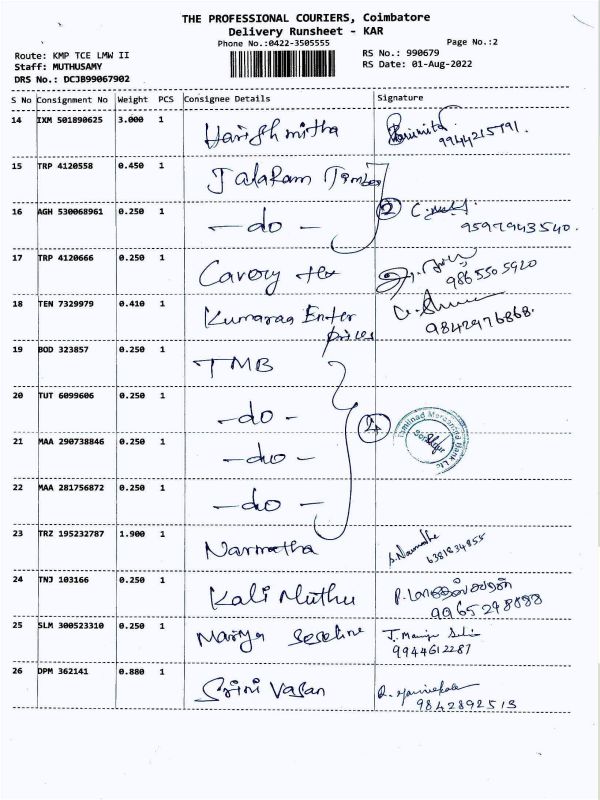 THE PROFESSIONAL COURIERS, Coimbatore
Delivery Runsheet - KAR
Phone No.:0422-3505555
Page No.:2
Route: KMP TCE LMW II
RS No.: 990679
Staff: MUTHUSAMY
RS Date: 01-Aug-2022
DRS No.: DCJB99067902
S No Consignment No Weight PCS Consignee Details Signature
14 IXM 501890625 3.000 1 Harishmitha
9944215791.
15 TRP 4120558 0.450 1 Jalaram Timber
16 AGH 530068961 0.250 1 -do- 2
9597943540.
17 TRP 4120666 0.250 1 Cavery
9865505920
18 TEN 7329979 0.410 1 Kumaraa Enter
prises
9842976868.
19 BOD 323857 0.250 1 TMB
20 TUT 6099606 0.250 1 -do-
4 Tamilnad Mercantile Bank Ltd
21 MAA 290738846 0.250 1 -do-
22 MAA 281756872 0.250 1 -do-
23 TRZ 195232787 1.900 1 Narmatha S.Narmatha
6381834855
24 TNJ 103166 0.250 1 Kali Muthu
9965298888
25 SLM 300523310 0.250 1 Mariya
9944612287
26 DPM 362141 0.880 1 Srini Vasan
9842892513